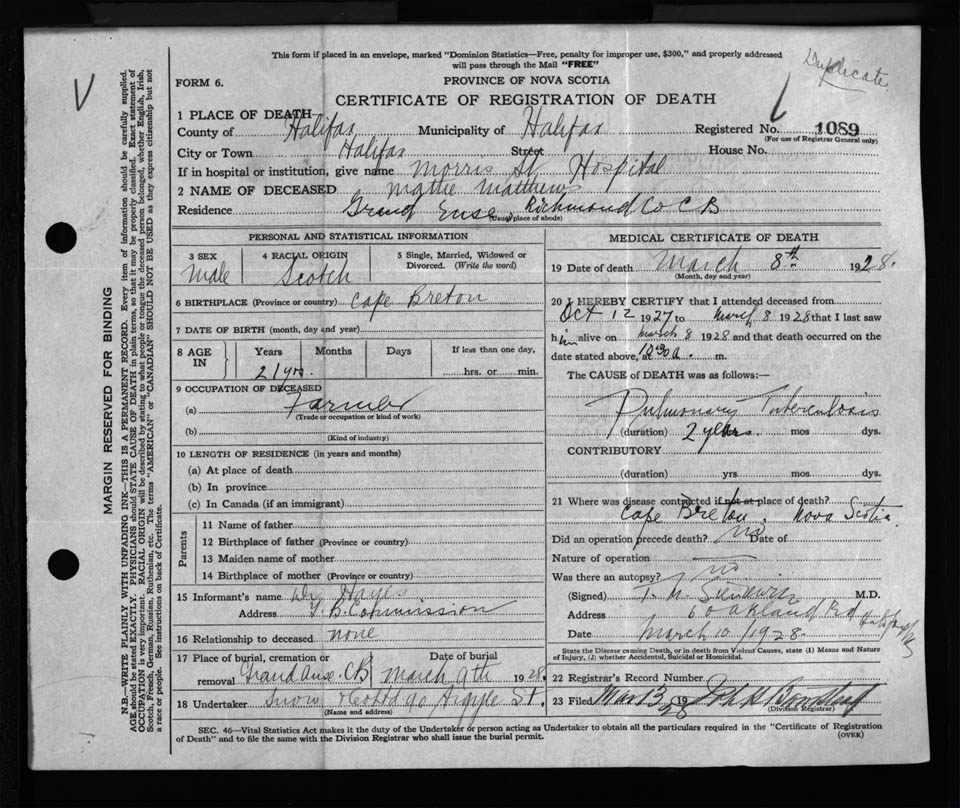 This form if placed in an envelope, marked "Dominion Statistics—Free, penalty for improper use, $300," and properly addressed
will pass through the Mail "FREE"
Duplicate
FORM 6.
PROVINCE OF NOVA SCOTIA
CERTIFICATE OF REGISTRATION OF DEATH
1 PLACE OF DEATH
County of Halifax Municipality of Halifax Registered No. 1089
(For use of Registrar General only)
City or Town Halifax Street House No.
If in hospital or institution, give name Morris St Hospital
2 NAME OF DECEASED Mattie Matthews
Residence Grand Ense, Richmond Co C B
(Usual place of abode)
PERSONAL AND STATISTICAL INFORMATION
3 SEX 4 RACIAL ORIGIN 5 Single, Married, Widowed or
Divorced. (Write the word)
Male Scotch
6 BIRTHPLACE (Province or country) Cape Breton
7 DATE OF BIRTH (month, day and year)
8 AGE IN Years Months Days If less than one day,
21 yrs. hrs. or min.
9 OCCUPATION OF DECEASED
(a) Farmer
(Trade or occupation or kind of work)
(b)
(Kind of industry)
10 LENGTH OF RESIDENCE (in years and months)
(a) At place of death
(b) In province
(c) In Canada (if an immigrant)
Parents
11 Name of father
12 Birthplace of father (Province or country)
13 Maiden name of mother
14 Birthplace of mother (Province or country)
15 Informant's name Dr Hayes
Address T. B. Commission
16 Relationship to deceased none
17 Place of burial, cremation or Date of burial
removal Grand Anse. CB March 9th 1928.
18 Undertaker Snow 90 Argyle St.
(Name and address)
MEDICAL CERTIFICATE OF DEATH
19 Date of death March 8th 1928.
(Month, day and year)
20 I HEREBY CERTIFY that I attended deceased from
Oct 12 1927 to March 8 1928 that I last saw
him alive on March 8 1928 and that death occurred on the
date stated above, at 10:30 a. m.
The CAUSE of DEATH was as follows:—
Pulmonary Tuberculosis
(duration) 2 years mos dys.
CONTRIBUTORY
(duration) yrs mos dys.
21 Where was disease contracted if not at place of death?
Cape Breton, Nova Scotia
Did an operation precede death? no Date of
Nature of operation
Was there an autopsy? no
(Signed) T. M. M.D.
Address 6 Oakland Rd Halifax
Date March 10/1928.
State the Disease causing Death, or in death from Violent Causes, state (1) Means and Nature
of Injury, (2) whether Accidental, Suicidal or Homicidal.
22 Registrar's Record Number
23 Filed Mar 13 1928
(Division Registrar)
SEC. 46—Vital Statistics Act makes it the duty of the Undertaker or person acting as Undertaker to obtain all the particulars required in the "Certificate of Registration
of Death" and to file the same with the Division Registrar who shall issue the burial permit.
(OVER)
MARGIN RESERVED FOR BINDING
N.B.—WRITE PLAINLY WITH UNFADING INK—THIS IS A PERMANENT RECORD. Every item of information should be carefully supplied.
AGE should be stated EXACTLY. PHYSICIANS should STATE CAUSE OF DEATH in plain terms, so that it may be properly classified. Exact statement of
OCCUPATION is very important. RACIAL ORIGIN will be described by stating to what people or tongue the deceased person belonged, whether English, Irish,
Scotch, French, German, Russian, Ruthenian, etc. The terms "AMERICAN" or "CANADIAN" SHOULD NOT BE USED as they express citizenship but not
a race or people. See instructions on back of Certificate.